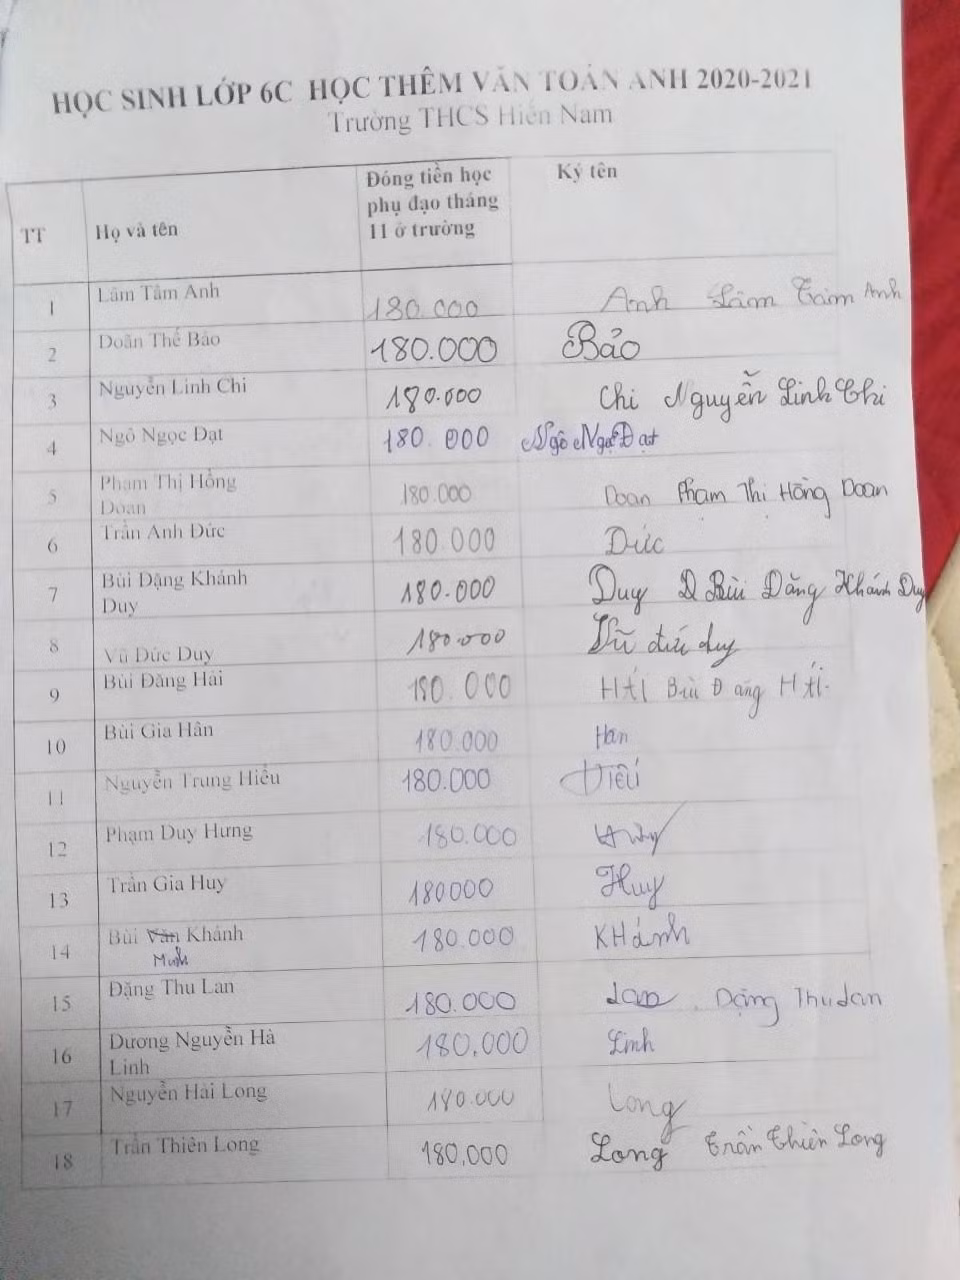 HỌC SINH LỚP 6C HỌC THÊM VĂN TOÁN ANH 2020-2021
Trường THCS Hiến Nam
TT Họ và tên Đóng tiền học phụ đạo tháng 11 ở trường Ký tên
1 Lâm Tâm Anh 180.000 Anh Lâm Tâm Anh
2 Doãn Thế Bảo 180.000 Bảo
3 Nguyễn Linh Chi 180.000 Chi Nguyễn Linh Chi
4 Ngô Ngọc Đạt 180.000 Ngô Ngọc Đạt
5 Phạm Thị Hồng Doan 180.000 Doan Phạm Thị Hồng Doan
6 Trần Anh Đức 180.000 Đức
7 Bùi Dặng Khánh Duy 180.000 Duy Bùi Đăng Khánh Duy
8 Vũ Đức Duy 180.000 Vũ đức duy
9 Bùi Đăng Hải 180.000 Hải Bùi Đăng Hải
10 Bùi Gia Hân 180.000 Hân
11 Nguyễn Trung Hiếu 180.000 Hiếu
12 Phạm Duy Hưng 180.000
13 Trần Gia Huy 180000 Huy
14 Bùi Văn Khánh 180.000 KHánh
Minh
15 Đặng Thu Lan 180.000 Lan Dặng Thu Lan
16 Dương Nguyễn Hà Linh 180.000 Linh
17 Nguyễn Hải Long 180.000 Long
18 Trần Thiên Long 180,000 Long Trần Thiên Long